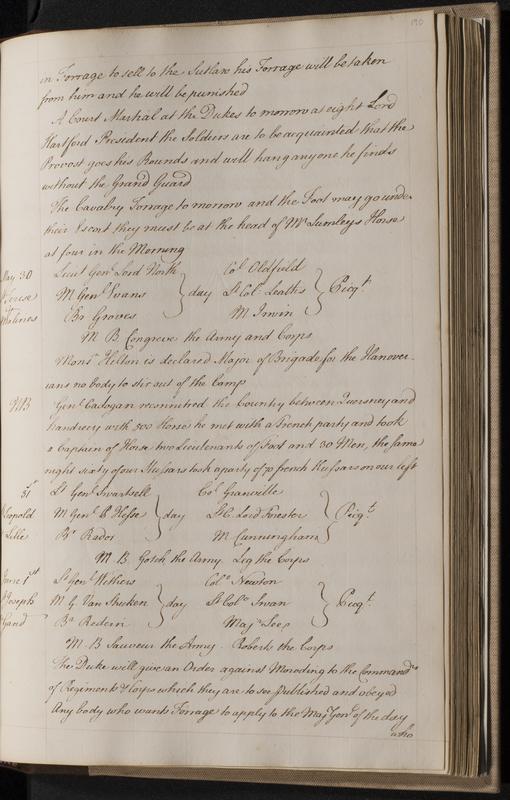 190
in Forrage to sell to the Sutlars his Forrage will be taken
from him and he will be punished
A Court Martial at the Dukes to morrow at eight Lord
Hartford President the Soldiers are to be acquainted that the
Provost goes his Rounds and will hang any one he finds
without the Grand Guard
The Cavalry Forrage to morrow and the Foot may go under
their Escort they must be at the head of Mr Lumleys Horse
at four in the Morning
May 30 Lieut Genl. Lord North Col Oldfield
M Genl Evans day Lt Col. Leathes Picqt
Malines Br Groves M Irwin
M B Congreve the Army and Corps
Monsr Helton is declared Major of Brigade for the Hanover-
ians no body to stir out of the Camp
NB Genl Cadogan reconnitred the Country between Quersney and
Landrecy with 500 Horse he met with a French party and took
a Captain of Horse two Lieutenants of Foot and 30 Men, the same
night sixty of our Hussars took a party of 70 french Hussars on our left
31 Lt Genl Swartsell Col Granville
Leopold M Genl P Hesse day Lt C. Lord Forester Picqt
Lille Br Rador M Cunningham
M B. Gotch the Army Leg the Corps
June 1st Lt Genl Withers Colo Newton
Joseph M G Van Stucken day Lt Colo Swan Picqt
Gand Br Redern Majr
M. B Sauveur the Army. Roberts the Corps
The Duke will give an Order against Moroding to the Commandrs
of Regiments & Corps which they are to see published and obeyed
Any body who wants Forrage to apply to the Maj Genl of the day
who